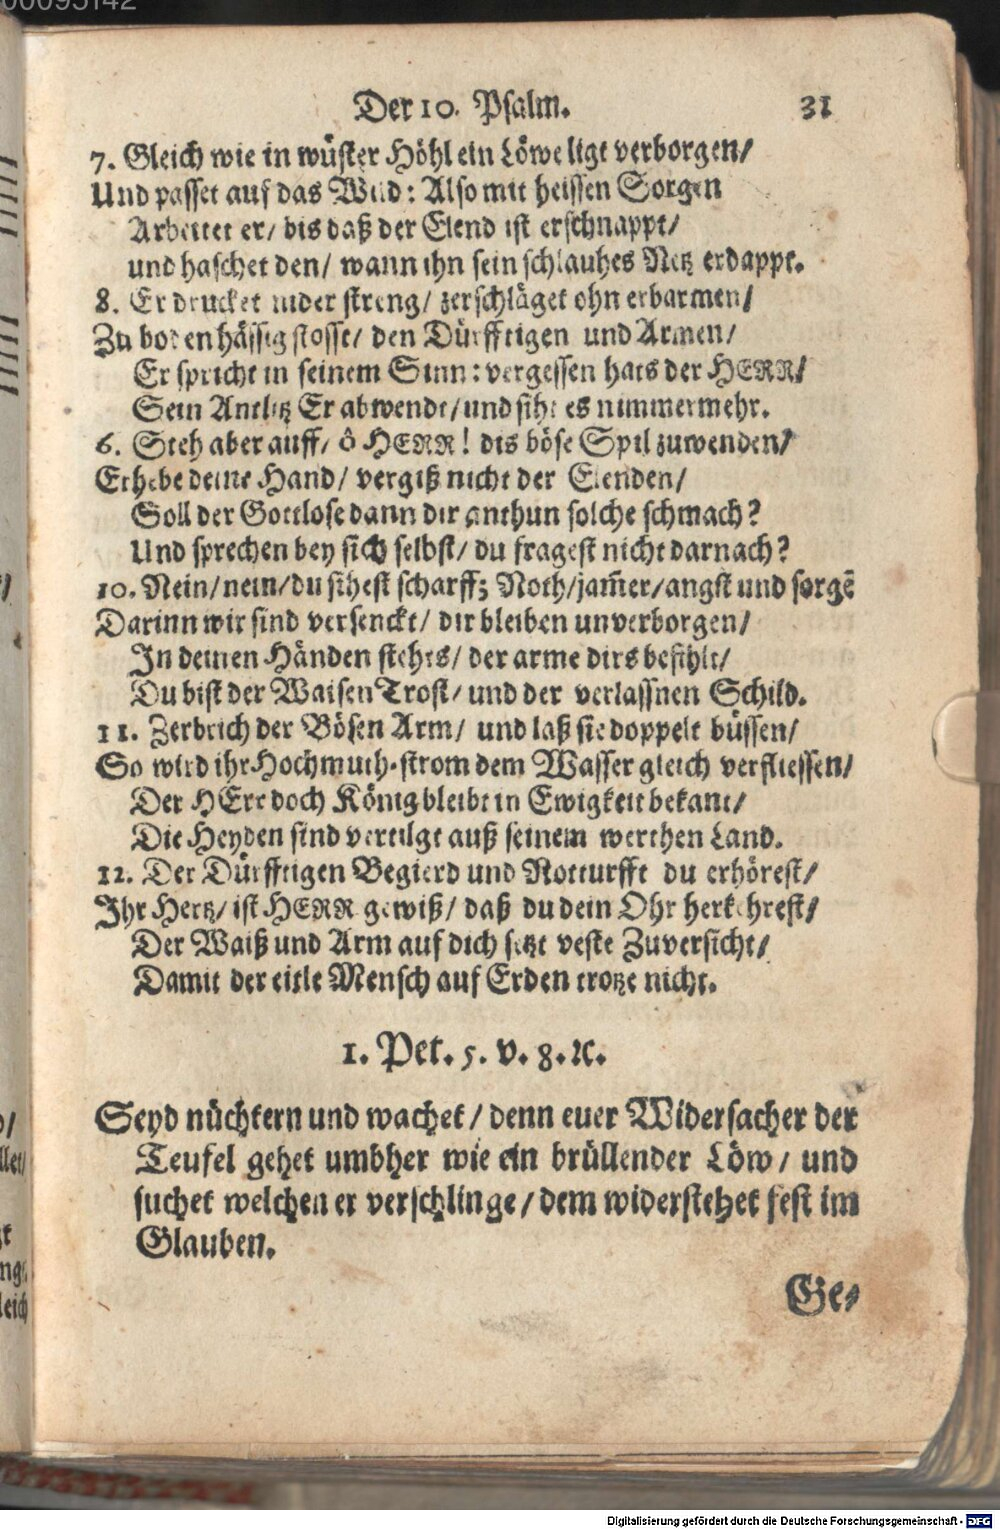 Der 10. Psalm. 31
7. Gleich wie in wüster Höhl ein Löwe ligt verborgen/
Und passet auf das Wild: Also mit heissen Sorgen
Arbeitet er/ bis daß der Elend ist erschnappt/
und haschet den/ wann ihn sein schlauhes Netz erdappt.
8. Er drucket nider streng/ zerschläget ohn erbarmen/
Zu boden hässig stosst/ den Dürfftigen und Armen/
Er spricht in seinem Sinn: vergessen hats der HERR/
Sein Antlitz Er abwendt/ und siht es nimmermehr.
6. Steh aber auff/ ô HERR! dis böse Spil zuwenden/
Erhebe deine Hand/ vergiß nicht der Elenden/
Soll der Gottlose dann dir anthun solche schmach?
Und sprechen bey sich selbst/ du fragest nicht darnach?
10. Nein/ nein/ du sihest scharff; Noth/ jam̃er/ angst und sorgẽ
Darinn wir sind versenckt/ dir bleiben unverborgen/
In deinen Händen stehts/ der arme dirs befihlt/
Du bist der Waisen Trost/ und der verlassnen Schild.
11. Zerbrich der Bösen Arm/ und laß sie doppelt büssen/
So wird ihr Hochmuth-strom dem Wasser gleich verfliessen/
Der HErr doch König bleibt in Ewigkeit bekant/
Die Heyden sind vertilgt auß seinem werthen Land.
12. Der Dürfftigen Begierd und Notturfft du erhörest/
Ihr Hertz/ ist HERR gewiß/ daß du dein Ohr herkehrest/
Der Waiß und Arm auf dich setzt veste Zuversicht/
Damit der eitle Mensch auf Erden trotze nicht.
1. Pet. 5. v. 8. ꝛc.
Seyd nüchtern und wachet/ denn euer Widersacher der
Teufel gehet umbher wie ein brüllender Löw/ und
suchet welchen er verschlinge/ dem widerstehet fest im
Glauben.
Ge-
Digitalisierung gefördert durch die Deutsche Forschungsgemeinschaft - DFG